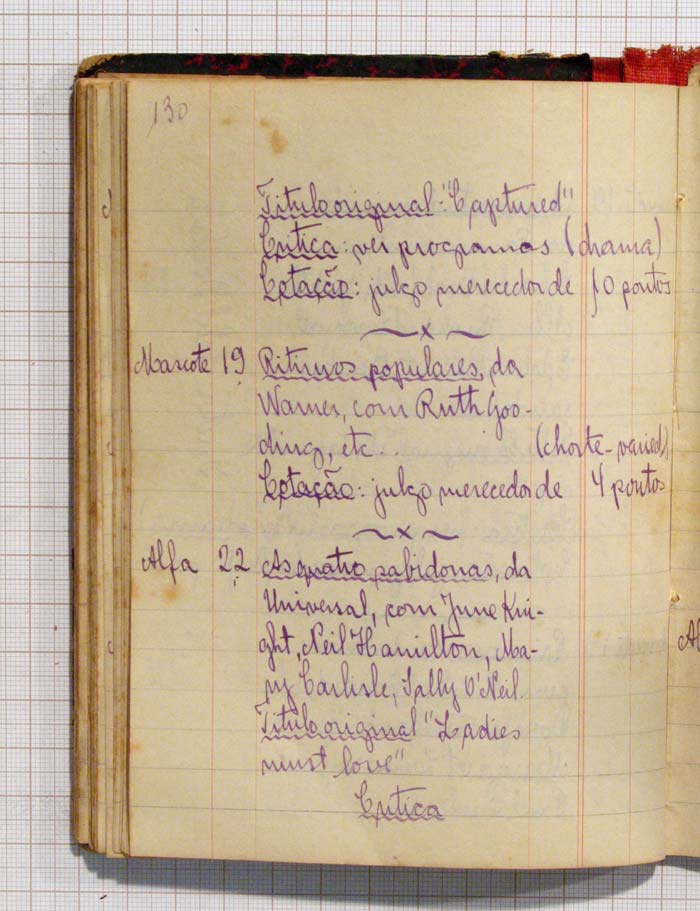 130
Titulo original: "Captured"
Critica: ver programas (drama)
Cotação: julgo merecedor de 10 pontos
x
Mascote 19 Ritmos populares, da
Warner, com Ruth Goo-
ding, etc (chorte-varied)
Cotação: julgo merecedor de 4 pontos
x
Alfa 22 As quatro sabidonas, da
Universal, com June Kni-
ght, Neil Hamilton, Ma-
ry Carlisle, Sally O'Neil.
Titulo original "Ladies
must love"
Critica
Al